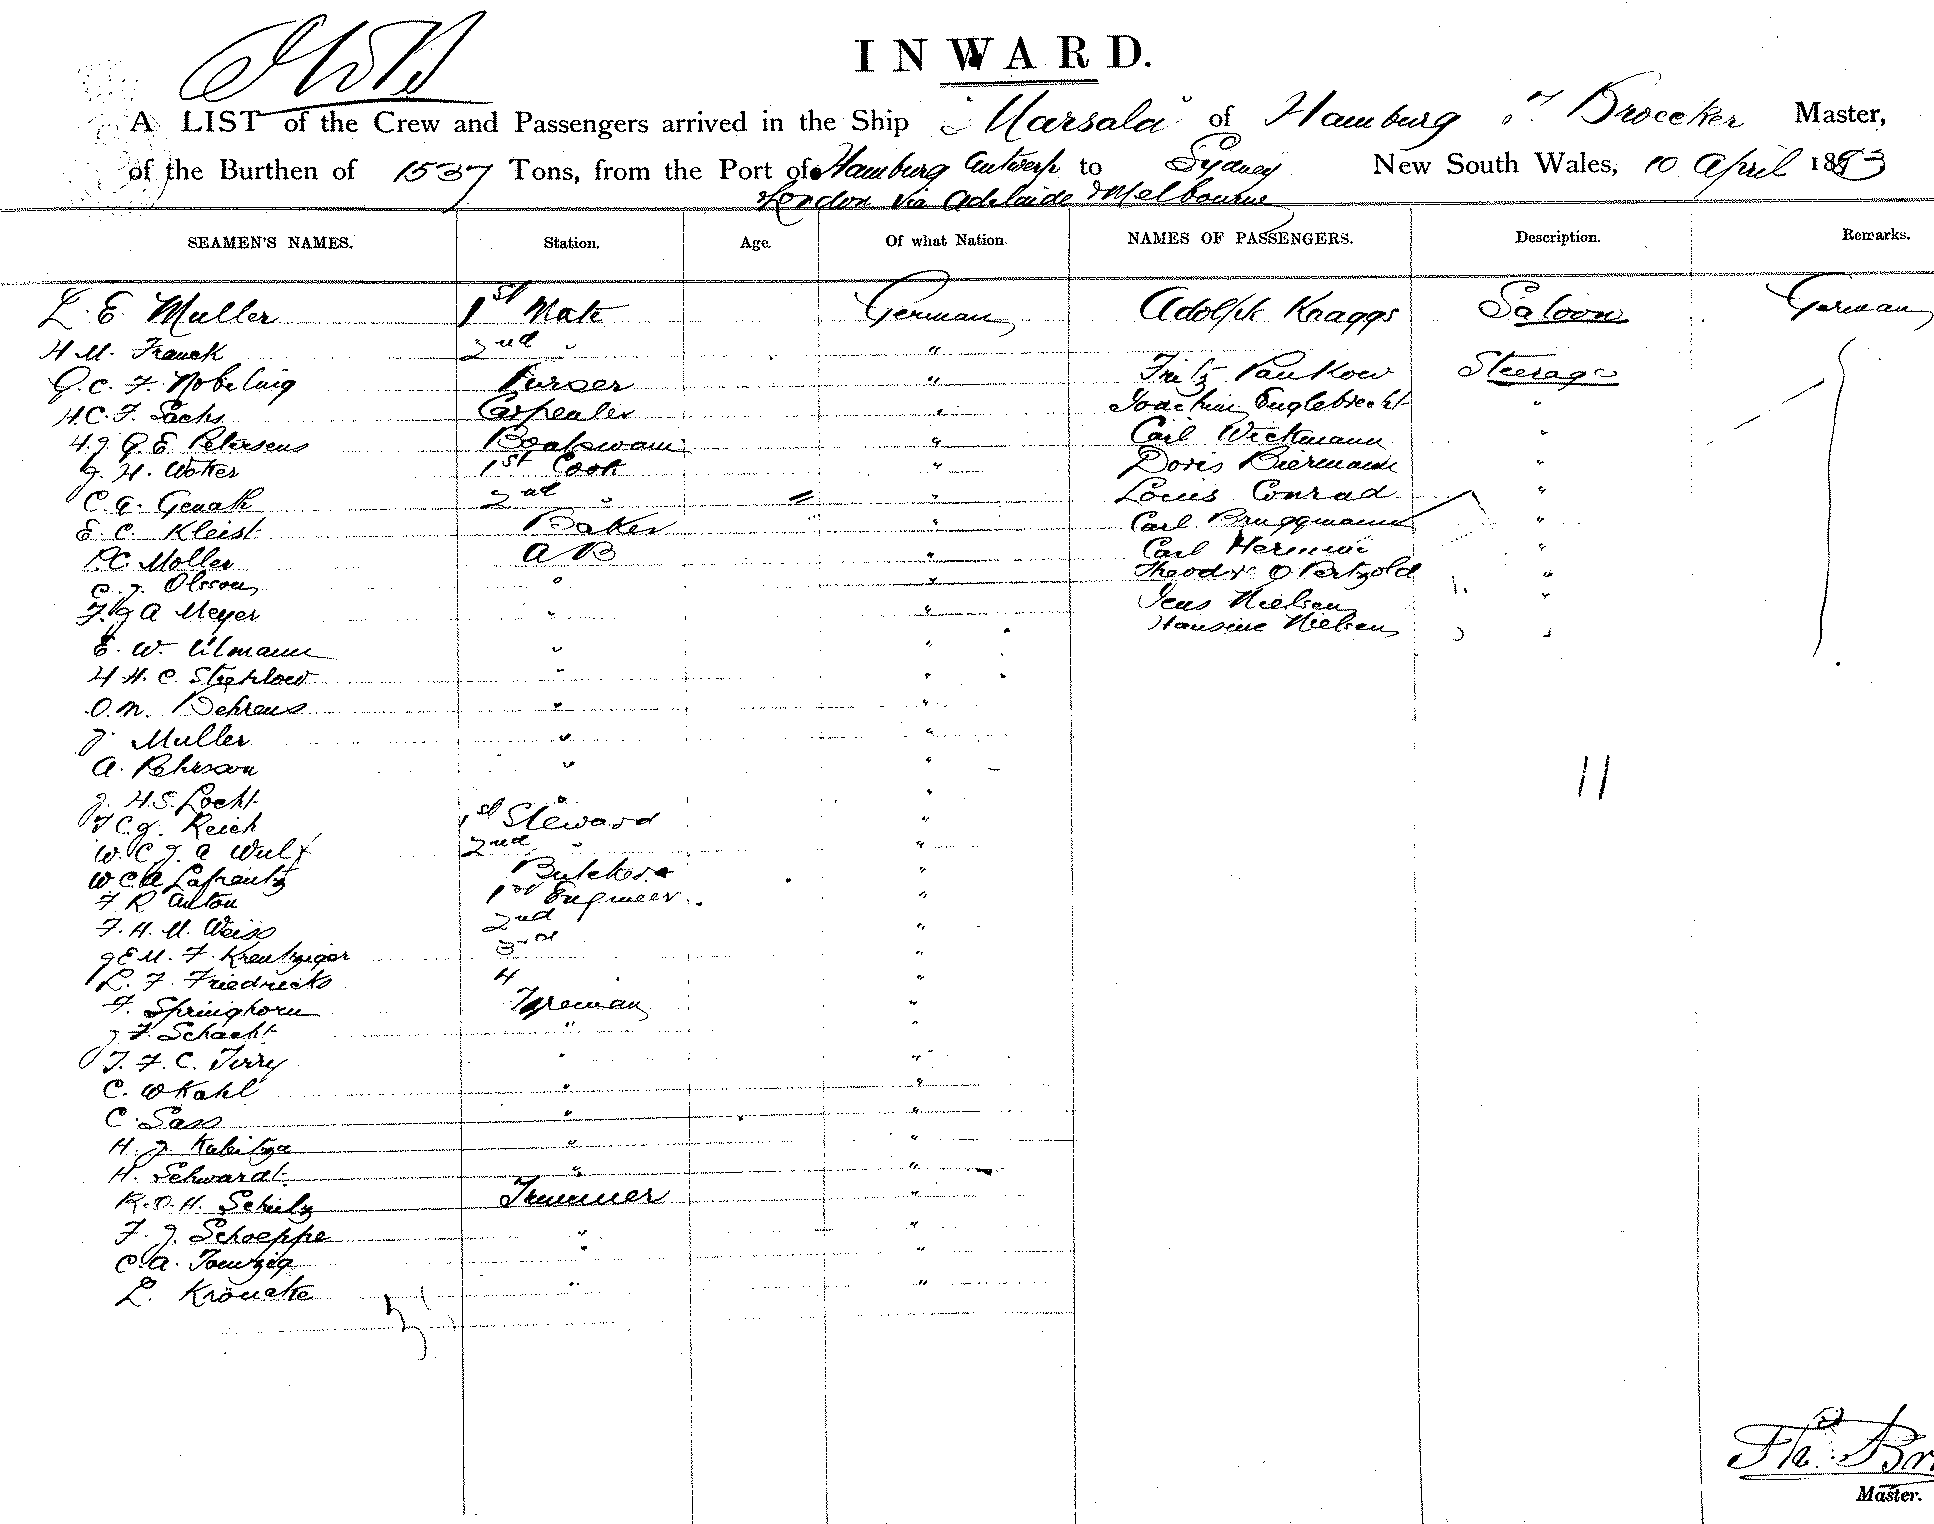 INWARD.
A LIST of the Crew and Passengers arrived in the Ship "Marsala" of Hamburg Broecker Master,
of the Burthen of 1537 Tons, from the Port of Hamburg Antwerp to Sydney New South Wales, 10 April 1893
London via Adelaide & Melbourne
SEAMEN'S NAMES. Station. Age. Of what Nation. NAMES OF PASSENGERS. Description. Remarks.
L. E. Muller 1st Mate German Adolph Knaggs Saloon German
H M. Franck 2nd " "
G. C. F. Nobeling Purser " Fritz Pankow Steerage
H. C. F. Sachs Carpenter " Joachim Englebrecht "
H. J. G. E. Petersens Boatswain " Carl Wickmann "
J. H. Woker 1st Cook " Doris Biermann "
C. G. Genak 2nd " " Louis Conrad "
E. C. Kleist Baker " Carl Bruggmann "
P. C. Moller A B " Carl "
C. J. Olsson " " Theodor O Pertzold "
F. J. A Meyer " " Jens Nielsen "
E. W. Ulmann " " Hansine Nielsen "
H H. C. Strehlow " "
O. N. Behrens " "
J. Muller " "
A. Pehrson " "
J. H. S. Locht " "
F C. J. Reich 1st Steward "
W. C. J. A Wulf 2nd " "
W C A Lafrentz Butcher "
F R Anton 1st Engineer "
F. H. M. Weiss 2nd "
J E M. F. Kreutziger 3rd "
L. F. Friedricks 4 "
F. Springhorn Fireman "
J F. Schacht " "
J. F. C. Terry " "
C. W Kahl " "
C Sass " "
H. J. Kubitza " "
H. Schwardt " "
R. O. H. Schulz Trimmer "
F. J. Schoeppe " "
C. A. " "
L. Kroncke " "
11
Master.